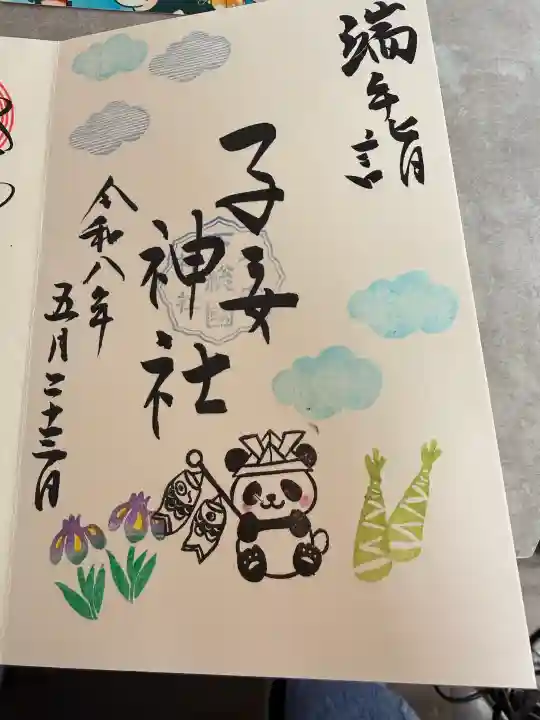 端午詣
子安
神社
令和八年
五月二十三日